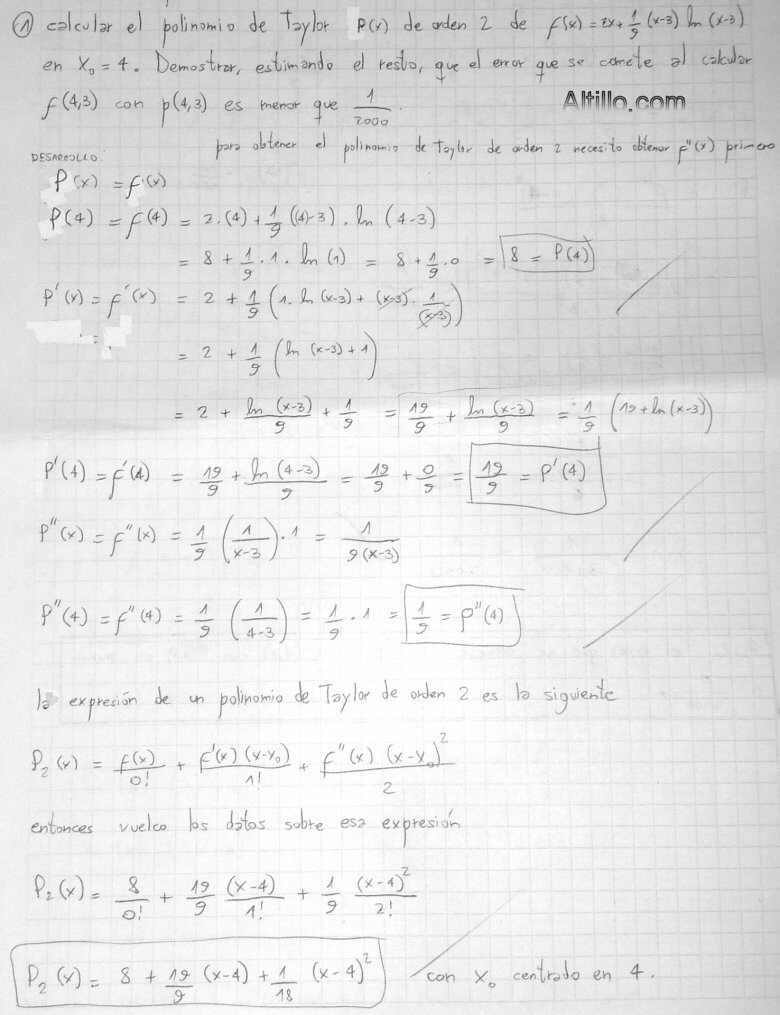 ① calcular el polinomio de Taylor P(x) de orden 2 de f(x) = 2x + 1/9 (x-3) ln (x-3)
en X₀ = 4. Demostrar, estimando el resto, que el error que se comete al calcular
f(4,3) con p(4,3) es menor que 1/2000.
Altillo.com
DESARROLLO:
para obtener el polinomio de Taylor de orden 2 necesito obtener f''(x) primero
P(x) = f(x)
P(4) = f(4) = 2.(4) + 1/9 ((4)-3) . ln (4-3)
= 8 + 1/9 . 1 . ln (1) = 8 + 1/9 . 0 = 8 = P(4)
P'(x) = f'(x) = 2 + 1/9 (1. ln (x-3) + (x-3) . 1/(x-3))
=
= 2 + 1/9 (ln (x-3) + 1)
= 2 + ln (x-3)/9 + 1/9 = 19/9 + ln (x-3)/9 = 1/9 (19 + ln (x-3))
P'(4) = f'(4) = 19/9 + ln (4-3)/9 = 19/9 + 0/9 = 19/9 = P'(4)
P''(x) = f''(x) = 1/9 (1/(x-3)) . 1 = 1/(9(x-3))
P''(4) = f''(4) = 1/9 (1/(4-3)) = 1/9 . 1 = 1/9 = P''(4)
la expresión de un polinomio de Taylor de orden 2 es la siguiente
P₂(x) = f(x)/0! + f'(x) (x-x₀)/1! + f''(x) (x-x₀)²/2
entonces vuelco los datos sobre esa expresión
P₂(x) = 8/0! + 19/9 (x-4)/1! + 1/9 (x-4)²/2!
P₂(x) = 8 + 19/9 (x-4) + 1/18 (x-4)² con X₀ centrado en 4.